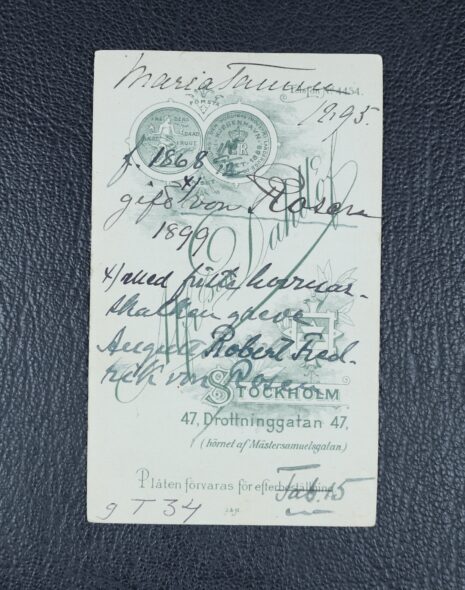 Maria Tamm
Telefon Nº 4454.
1895.
FÖRSTA
KJØBENHAVN 1888
f. 1868
x)
gift von Rosen
1899
x) med förste hovmar-
skalken greve
August Robert Fred-
rik von Rosen
STOCKHOLM
47, Drottninggatan 47,
(hörnet af Mästersamuelsgatan.)
Plåten förvaras för efterbeställning
Tab. 15
g T 34